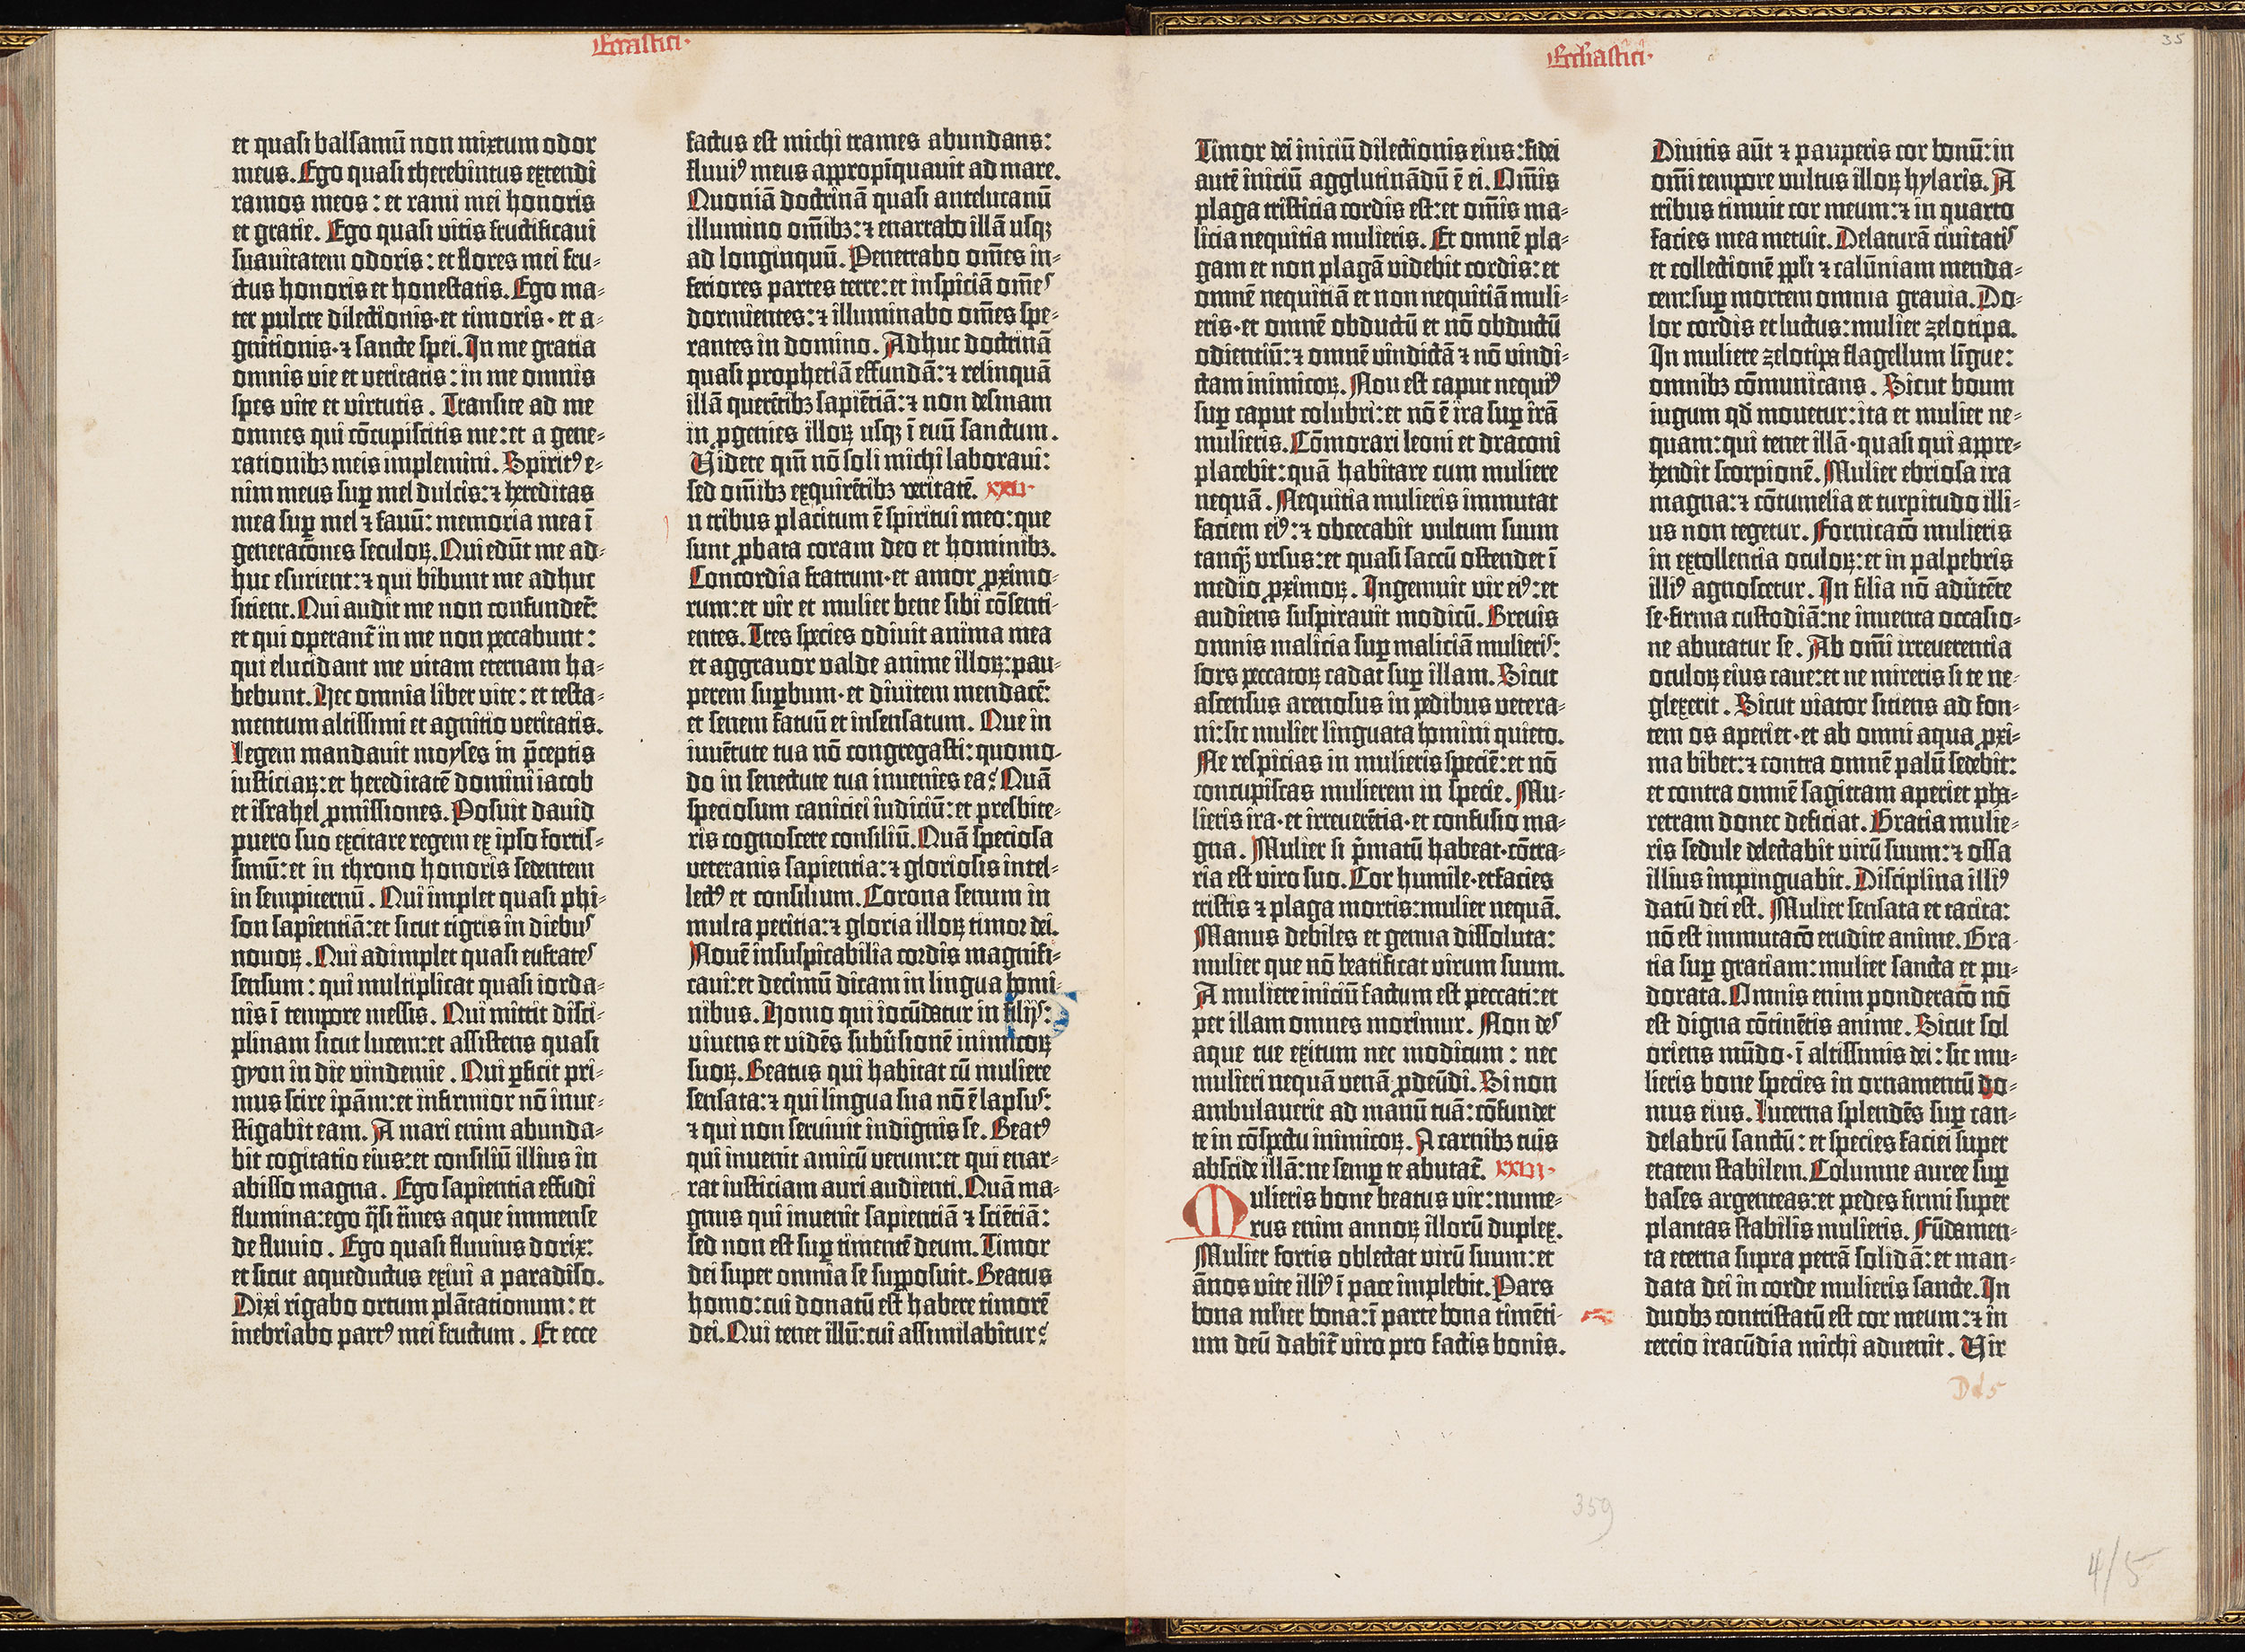 Eccꝉastici·
et quasi balsamū non mixtum odor
meus. Ego quasi therebintus extendi
ramos meos : et rami mei honoris
et gratie. Ego quasi vitis fructificaui
suauitatem odoris : et flores mei fru-
ctus honoris et honestatis. Ego ma-
ter pulcre dilectionis·et timoris·et a-
gnitionis·⁊ sancte spei. In me gratia
omnis vie et veritatis : in me omnis
spes vite et virtutis. Transite ad me
omnes qui cōcupiscitis me: et a gene-
rationibꝫ meis implemini. Spiritꝰ e-
nim meus suꝑ mel dulcis: ⁊ hereditas
mea suꝑ mel ⁊ fauū: memoria mea ī
generacōnes seculoꝝ. Qui edūt me ad-
huc esurient: ⁊ qui bibunt me adhuc
sitient. Qui audit me non confundet̄:
et qui operant̄ in me non peccabunt :
qui elucidant me vitam eternam ha-
bebunt. Hec omnia liber vite : et testa-
mentum altissimi et agnitio veritatis.
Legem mandauit moyses in p̄ceptis
iusticiaꝝ: et hereditatē domini iacob
et israhel ꝓmissiones. Posuit dauid
puero suo excitare regem ex ipso fortis-
simū: et in throno honoris sedentem
in sempiternū. Qui implet quasi phi-
son sapientiā: et sicut tigris in diebus
nouoꝝ. Qui adimplet quasi eufrates
sensum : qui multiplicat quasi iorda-
nis ī tempore messis. Qui mittit disci-
plinam sicut lucem: et assistens quasi
gyon in die vindemie. Qui ꝑficit pri-
mus scire ip̄am: et infirmior nō inue-
stigabit eam. A mari enim abunda-
bit cogitatio eius: et consiliū illius in
abisso magna. Ego sapientia effudi
flumina: ego q̄si t̄mes aque immense
de fluuio. Ego quasi fluuius dorix:
et sicut aqueductus exiui a paradiso.
Dixi rigabo ortum plātationum : et
inebriabo partꝰ mei fructum. Et ecce
factus est michi trames abundans:
fluuiꝰ meus appropīquauit ad mare.
Quoniā doctrinā quasi antelucanū
illumino om̄ibꝫ: ⁊ enarrabo illā usqꝫ
ad longinquū. Penetrabo om̄es in-
feriores partes terre: et inspiciā om̄es
dormientes: ⁊ illuminabo om̄es spe-
rantes in domino. Adhuc doctrinā
quasi prophetiā effundā: ⁊ relinquā
illā querētibꝫ sapiētiā: ⁊ non desinam
in ꝓgenies illoꝝ usqꝫ ī euū sanctum.
Videte qm̄ nō soli michi laboraui:
sed om̄ibꝫ exquirētibꝫ veritatē. xxv·
n tribus placitum ē spiritui meo: que
sunt ꝓbata coram deo et hominibꝫ.
Concordia fratrum·et amor ꝓximo-
rum: et vir et mulier bene sibi cōsenti-
entes. Tres species odiuit anima mea
et aggrauor valde anime illoꝝ: pau-
perem suꝑbum·et diuitem mendacē:
et senem fatuū et insensatum. Que in
iuuētute tua nō congregasti: quomo-
do in senectute tua inuenies ea? Quā
speciosum caniciei iudiciū: et presbite-
ris cognoscere consiliū. Quā speciosa
veteranis sapientia: ⁊ gloriosis intel-
lectꝰ et consilium. Corona senum in
multa peritia: ⁊ gloria illoꝝ timor dei.
Nouē insuspicabilia cordis magnifi-
caui: et decimū dicam in lingua homi-
nibus. Homo qui iocūdatur in filijs:
viuens et vidēs subūsionē inimicoꝝ
suoꝝ. Beatus qui habitat cū muliere
sensata: ⁊ qui lingua sua nō ē lapsus:
⁊ qui non seruiuit indignis se. Beatꝰ
qui inuenit amicū verum: et qui enar-
rat iusticiam auri audienti. Quā ma-
gnus qui inuenit sapientiā ⁊ sciētiā:
sed non est suꝑ timentē deum. Timor
dei super omnia se supposuit. Beatus
homo: cui donatū est habere timorē
dei. Qui tenet illū: cui assimilabitur?
Eccꝉiastici·
35
Timor dei iniciū dilectionis eius: fidei
autē iniciū agglutinādū ē ei. Om̄is
plaga tristicia cordis est: et om̄is ma-
licia nequitia mulieris. Et omnē pla-
gam et non plagā videbit cordis: et
omnē nequitiā et non nequitiā muli-
eris·et omnē obductū et nō obductū
odientiū: ⁊ omnē vindictā ⁊ nō vindi-
ctam inimicoꝝ. Non est caput nequiꝰ
suꝑ caput colubri: et nō ē ira suꝑ irā
mulieris. Cōmorari leoni et draconi
placebit: quā habitare cum muliere
nequā. Nequitia mulieris immutat
faciem eiꝰ: ⁊ obcecabit vultum suum
tanqꝫ ursus: et quasi saccū ostendet ī
medio ꝓximoꝝ. Ingemuit vir eiꝰ: et
audiens suspirauit modicū. Breuis
omnis malicia suꝑ maliciā mulieris:
sors peccatoꝝ cadat suꝑ illam. Sicut
ascensus arenosus in pedibus vetera-
ni: sic mulier linguata homini quieto.
Ne respicias in mulieris speciē: et nō
concupiscas mulierem in specie. Mu-
lieris ira·et irreuerētia·et confusio ma-
gna. Mulier si p̄matū habeat·cōtra-
ria est viro suo. Cor humile·et facies
tristis ⁊ plaga mortis: mulier nequā.
Manus debiles et genua dissoluta:
mulier que nō beatificat virum suum.
A muliere iniciū factum est peccati: et
per illam omnes morimur. Non des
aque tue exitum nec modicum : nec
mulieri nequā veniā ꝓdeūdi. Si non
ambulauerit ad manū tuā: cōfundet
te in cōspectu inimicoꝝ. A carnibꝫ tuis
abscide illā: ne semꝑ te abutat̄. xxvi·
Mulieris bone beatus vir: nume-
rus enim annoꝝ illorū duplex.
Mulier fortis oblectat virū suum: et
ānos vite illiꝰ ī pace implebit. Pars
bona mlier bona: ī parte bona timēti-
um deū dabit̄ viro pro factis bonis.
Diuitis aūt ⁊ pauperis cor bonū: in
om̄i tempore vultus illoꝝ hylaris. A
tribus timuit cor meum: ⁊ in quarto
facies mea metuit. Delaturā ciuitatis
et collectionē ppli ⁊ calūniam menda-
cem: suꝑ mortem omnia grauia. Do-
lor cordis et luctus: mulier zelotipa.
In muliere zelotipa flagellum ligue:
omnibꝫ cōmunicans. Sicut boum
iugum qd̄ mouetur: ita et mulier ne-
quam: qui tenet illā·quasi qui appre-
hendit scorpionē. Mulier ebriosa ira
magna: ⁊ cōtumelia et turpitudo illi-
us non tegetur. Fornicacō mulieris
in extollentia oculoꝝ: et in palpebris
illiꝰ agnoscetur. In filia nō aduertēte
se·firma custodiā: ne inuenta occasio-
ne abutatur se. Ab om̄i irreuerentia
oculoꝝ eius caue: et ne mireris si te ne-
glexerit. Sicut viator sitiens ad fon-
tem os aperiet·et ab omni aqua ꝓxi-
ma bibet: ⁊ contra omnē palū sedebit:
et contra omnē sagittam aperiet pha-
retram donec deficiat. Gratia mulie-
ris sedule delectabit virū suum: ⁊ ossa
illius impinguabit. Disciplina illiꝰ
datū dei est. Mulier sensata et tacita:
nō est immutacō erudite anime. Gra-
tia suꝑ gratiam: mulier sancta et pu-
dorata. Omnis enim ponderacō nō
est digna cōtinētis anime. Sicut sol
oriens mūdo·ī altissimis dei: sic mu-
lieris bone species in ornamentū do-
mus eius. Lucerna splendēs suꝑ can-
delabrū sanctū: et species faciei super
etatem stabilem. Columne auree suꝑ
bases argenteas: et pedes firmi super
plantas stabilis mulieris. Fūdamen-
ta eterna supra petrā solidā: et man-
data dei in corde mulieris sancte. In
duobꝫ contristatū est cor meum: ⁊ in
tercio iracūdia michi aduenit. Vir
Dd5
359
4/5